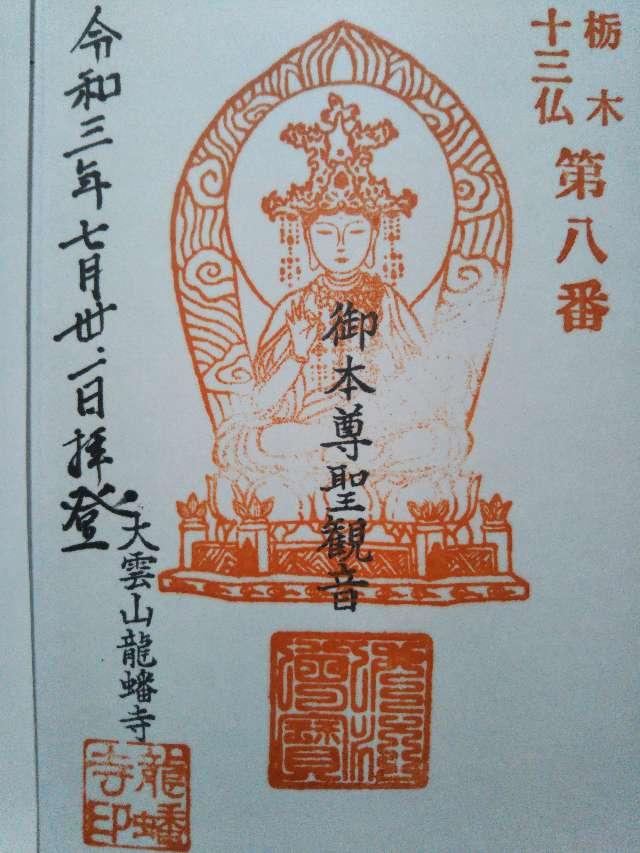 栃木
十三仏
第八番
御本尊聖観音
令和三年七月廿二日拝登
大雲山龍蟠寺
龍蟠寺印